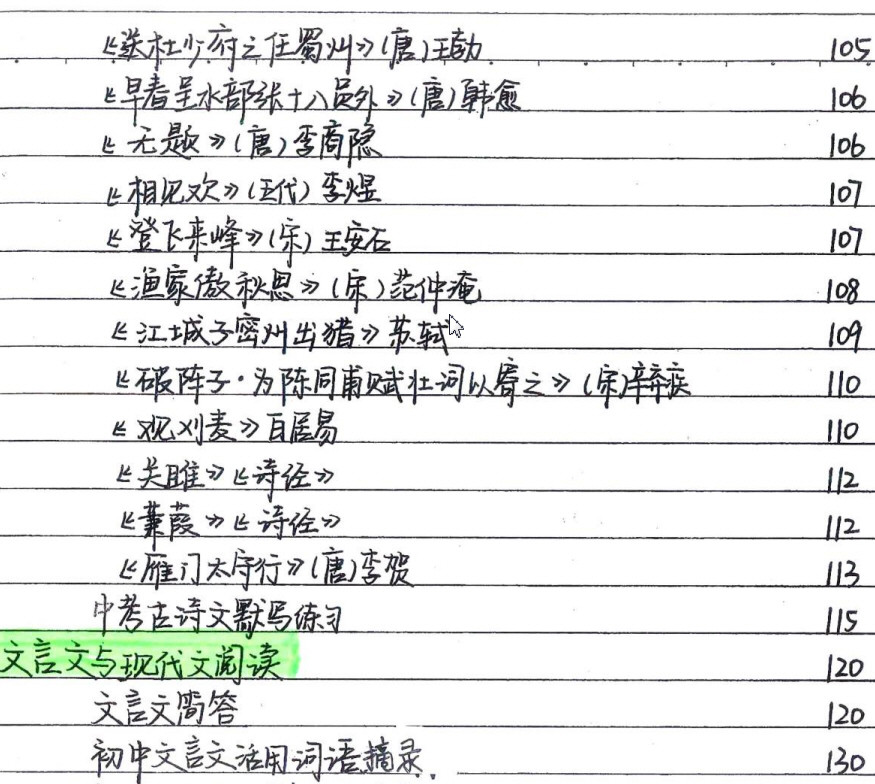 《送杜少府之任蜀州》(唐)王勃 105
《早春呈水部张十八员外》(唐)韩愈 106
《无题》(唐)李商隐 106
《相见欢》(五代)李煜 107
《登飞来峰》(宋)王安石 107
《渔家傲秋思》(宋)范仲淹 108
《江城子密州出猎》苏轼 109
《破阵子·为陈同甫赋壮词以寄之》(宋)辛弃疾 110
《观刈麦》白居易 110
《关雎》《诗经》 112
《蒹葭》《诗经》 112
《雁门太守行》(唐)李贺 113
中考古诗文默写练习 115
文言文与现代文阅读 120
文言文简答 120
初中文言文活用词语摘录 130